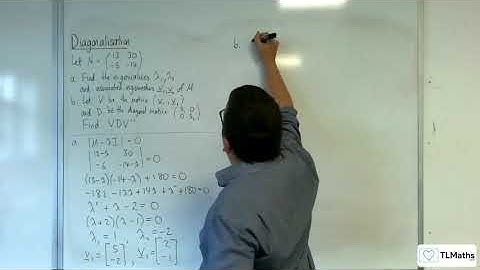 Diagonalisation
Let M = (13 30
-6 -14)
a. Find the eigenvalues λ₁, λ₂
and associated eigenvectors v₁, v₂ of M
b. Let V be the matrix (v₁ v₂)
and D be the diagonal matrix (λ₁ 0
0 λ₂)
Find VDV⁻¹
a. |M - λI| = 0
|13-λ 30
-6 -14-λ| = 0
(13-λ)(-14-λ) + 180 = 0
-182 - 13λ + 14λ + λ² + 180 = 0
λ² + λ - 2 = 0
(λ+2)(λ-1) = 0
λ₁ = 1 λ₂ = -2
v₁ = [5
-2] v₂ = [2
-1]
b.
TLMaths